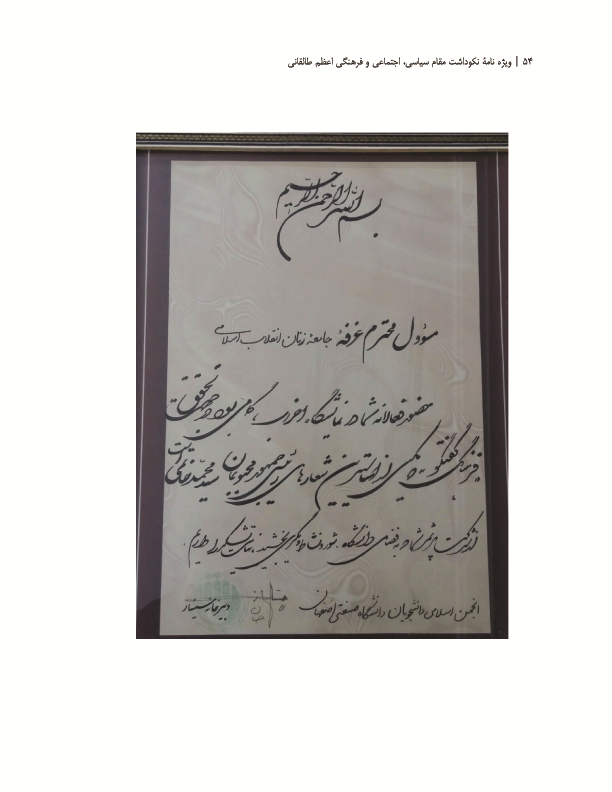 ۵۴ | ویژه نامهٔ نکوداشت مقام سیاسی، اجتماعی و فرهنگی اعظم طالقانی
بسم الله الرحمن الرحیم
مسؤول محترم غرفهٔ جامعهٔ زنان انقلاب اسلامی
حضور فعالانه شما در نمایشگاه احزاب، گامی بود در جهت تحقق
فرهنگ گفتگو که یکی از اصلیترین شعارهای رئیس جمهور محبوبمان سید محمد خاتمی است
از شرکت پرثمر شما که به فضای دانشگاه شور و نشاط دیگری بخشید نهایت تشکر را داریم.
انجمن اسلامی دانشجویان دانشگاه صنعتی اصفهان
دبیرخانه سمینار